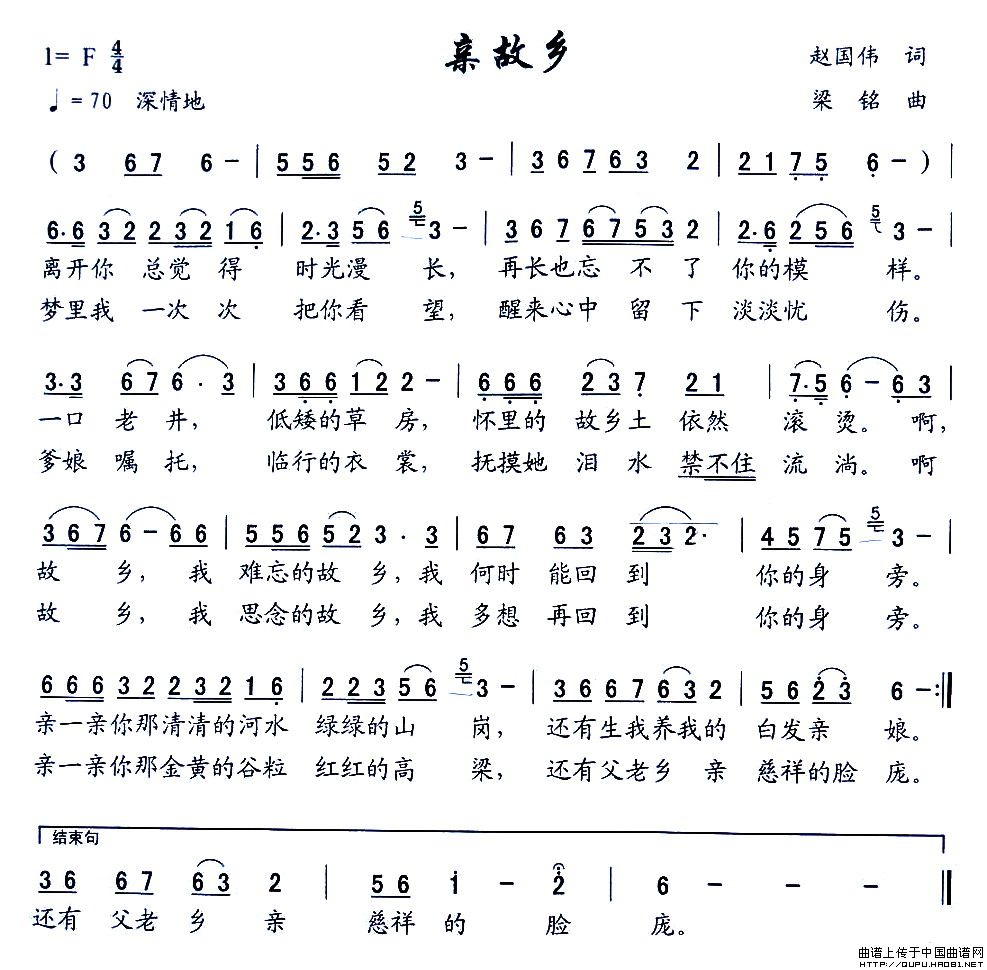 亲故乡
1= F 4/4
赵国伟 词
♩=70 深情地
梁 铭 曲
( 3 67 6 - | 556 52 3 - | 36763 2 | 2175 6 - ) |
6·6 32 232 16 | 2·3 56 5 3 - | 367 6753 2 | 2·6 256 5 3 - |
离开你 总觉 得 时光漫 长, 再长也忘 不 了 你的模 样。
梦里我 一次 次 把你看 望, 醒来心中 留 下 淡淡忧 伤。
3·3 67 6· 3 | 366 122 2 - | 6 66 6 23 7 21 | 7·5 6 - 63 |
一口 老 井, 低矮的草 房, 怀里的 故乡土 依然 滚 烫。 啊,
爹娘 嘱 托, 临行的衣 裳, 抚摸她 泪 水 禁不住 流 淌。 啊
367 6 - 66 | 556 52 3· 3 | 67 63 232· | 4575 5 3 - |
故 乡, 我 难忘的故 乡,我 何时 能回 到 你的身 旁。
故 乡, 我 思念的故 乡,我 多想 再回 到 你的身 旁。
666 32 232 16 | 223 56 5 3 - | 3667 632 | 5622 6 - :‖
亲一亲你那清清的河水 绿绿的山 岗, 还有生我养我的 白发亲 娘。
亲一亲你那金黄的谷粒 红红的高 梁, 还有父老乡 亲 慈祥的脸 庞。
结束句
36 67 63 2 | 56 1 - 2 | 6 - - - ‖
还有 父老 乡 亲 慈祥 的 脸 庞。
曲谱上传于中国曲谱网
HTTP://QUPU.HAO81.NET